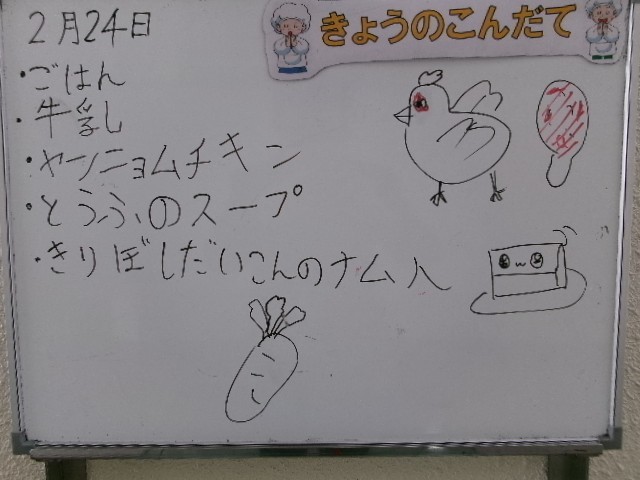 きょうのこんだて
2月24日
・ごはん
・牛乳し
・ヤンニョムチキン
・とうふのスープ
・きりぼしだいこんのナムル